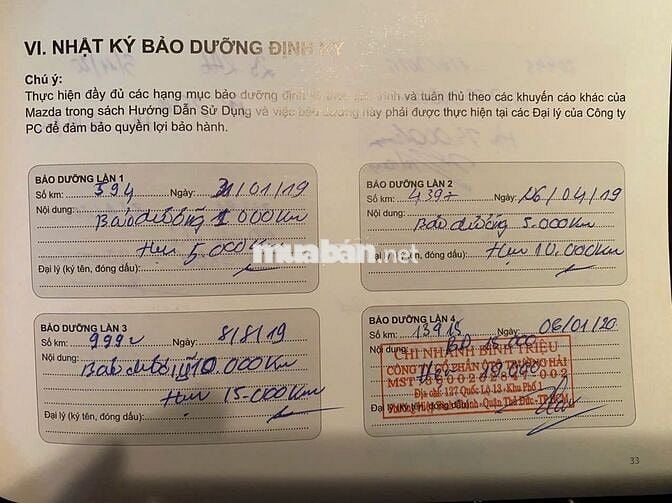 VI. NHẬT KÝ BẢO DƯỠNG ĐỊNH KỲ
Chú ý:
Thực hiện đầy đủ các hạng mục bảo dưỡng định kỳ theo lịch trình và tuân thủ theo các khuyến cáo khác của
Mazda trong sách Hướng Dẫn Sử Dụng và việc bảo dưỡng này phải được thực hiện tại các Đại lý của Công ty
PC để đảm bảo quyền lợi bảo hành.
BẢO DƯỠNG LẦN 1
Số km: 394 Ngày: 31/01/19
Nội dung:
Bảo dưỡng 1000Km
Hẹn 5.000Km
Đại lý (ký tên, đóng dấu):
BẢO DƯỠNG LẦN 2
Số km: 4397 Ngày: 26/04/19
Nội dung:
Bảo dưỡng 5.000Km
Hẹn 10.000Km
Đại lý (ký tên, đóng dấu):
muaban.net
BẢO DƯỠNG LẦN 3
Số km: 9992 Ngày: 8/8/19
Nội dung:
Bảo dưỡng 10.000Km
Hẹn 15.000Km
Đại lý (ký tên, đóng dấu):
BẢO DƯỠNG LẦN 4
Số km: 13915 Ngày: 06/01/20
Nội dung: BD 15.000
CHI NHÁNH BÌNH TRIỆU
Hẹn
Địa chỉ: 127 Quốc Lộ 13 - Khu Phố 1
Đại lý (ký tên, đóng dấu):
33